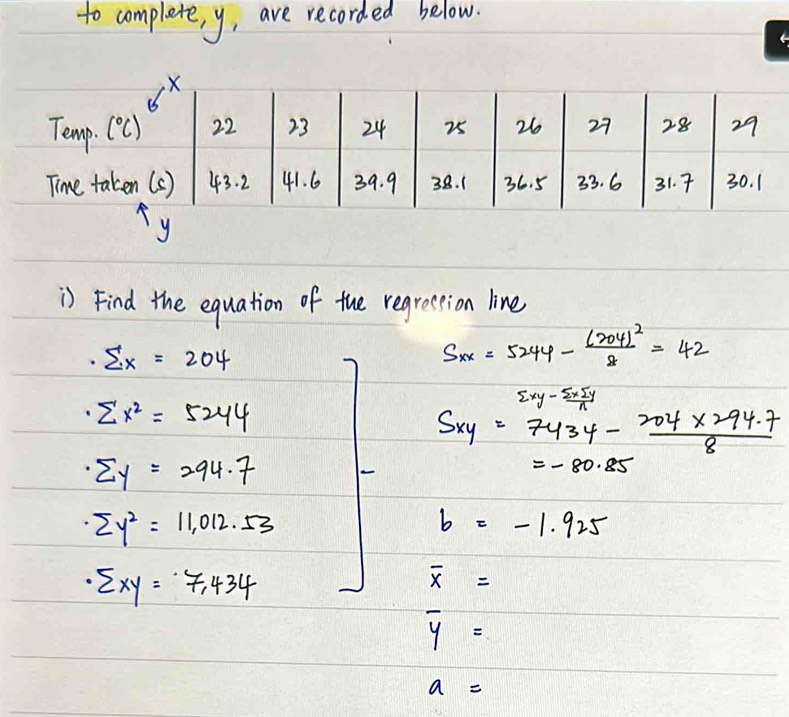 to complete, y, are recorded below.
x
Temp. (°C) 22 23 24 25 26 27 28 29
Time taken (s) 43.2 41.6 39.9 38.1 36.5 33.6 31.7 30.1
y
i) Find the equation of the regression line
· Σx = 204
· Σx² = 5244
· Σy = 294.7
· Σy² = 11,012.53
· Σxy = 7,434
Sxx = 5244 - (204)²/8 = 42
Σxy - ΣxΣy/n
Sxy = 7434 - 204 × 294.7/8
= -80.85
b = -1.925
x̄ =
ȳ =
a =